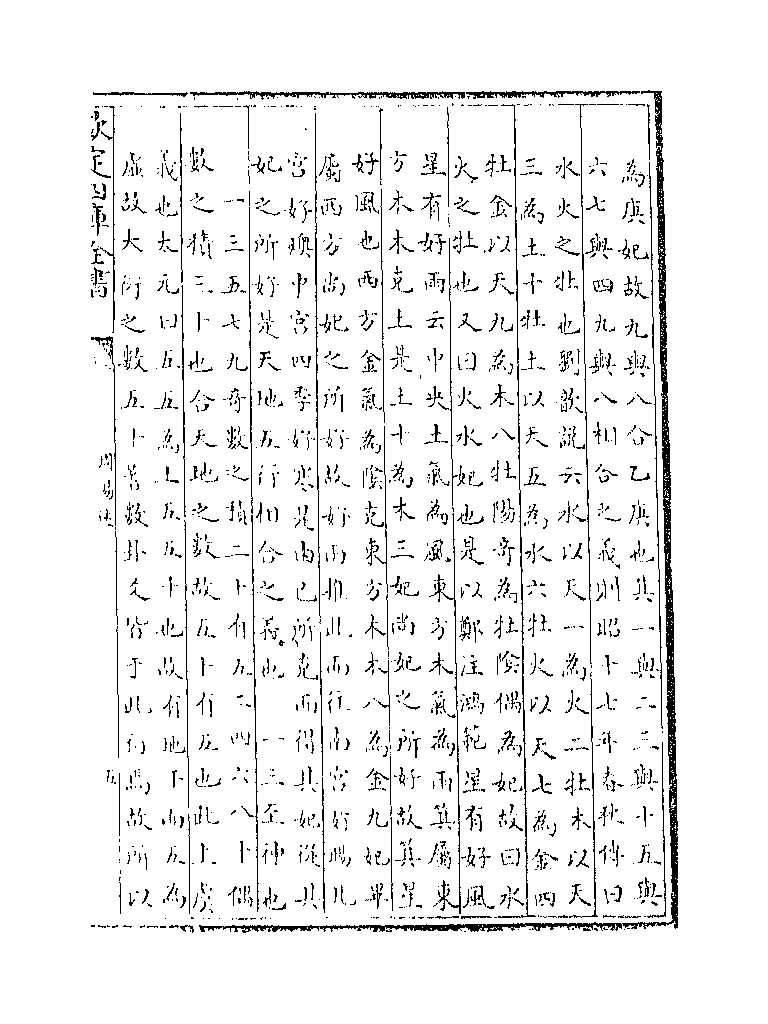 為庚妃故九與八合乙庚也其一與二三與十五與
六七與四九與八相合之義則昭十七年春秋傳曰
水火之牡也劉歆説云水以天一為火二牡木以天
三為土十牡土以天五為水六牡火以天七為金四
牡金以天九為木八牡陽奇為牡陰偶為妃故曰水
火之牡也又曰火水妃也是以鄭注鴻範星有好風
星有好雨云中央土氣為風東方木氣為雨箕屬東
方木木克土是土十為木三妃尚妃之所好故箕星
好風也西方金氣為陰克東方木木八為金九妃畢
屬西方尚妃之所好故好雨推此而往南宮好暘北
宮好燠中宮四季好寒是由已所克而得其妃從其
妃之所好是天地五行相合之義也 一三至神也
一三五七九奇數之積二十有五二四六八十偶
數之積三十也合天地之數故五十有五也此上虞
義也太元曰五五為土五五十也故有地十而五為
虛故大衍之數五十蓍數卦爻皆于此衍焉故所以
欽定四庫全書
周易述
五